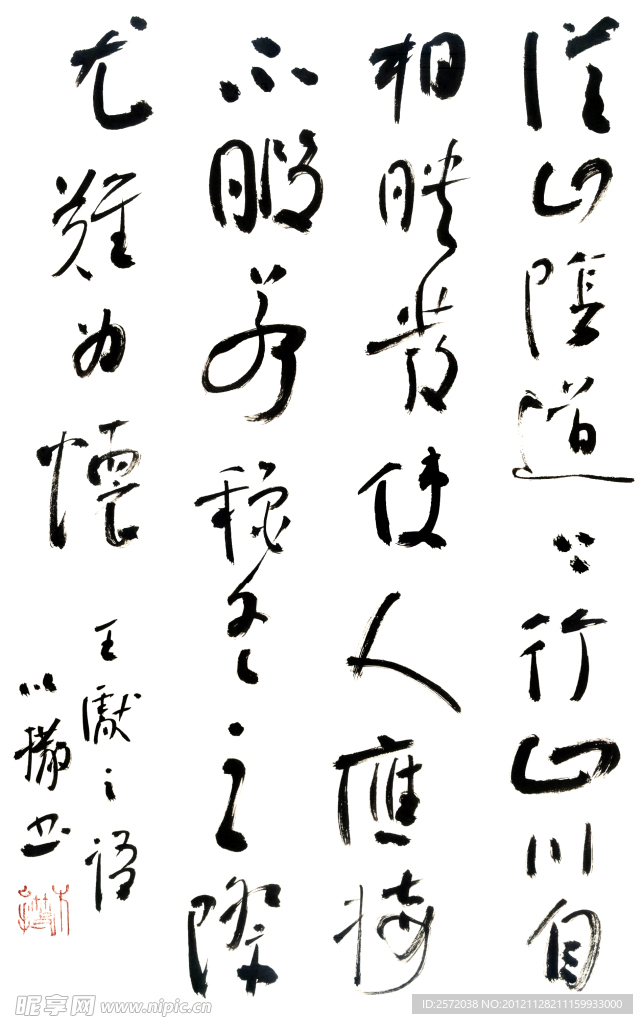 從山陰道上行山川自
相映發使人應接
不暇若秋冬之際
尤難為懷
王獻之語
以撒书
昵享网 www.nipic.cn
ID:2572038 NO:20121128211159933000